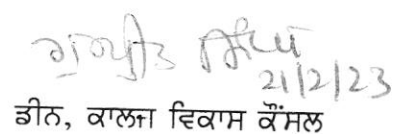 ਗੁਰਪ੍ਰੀਤ ਸਿੰਘ
21/2/23
ਡੀਨ, ਕਾਲਜ ਵਿਕਾਸ ਕੌਂਸਲ